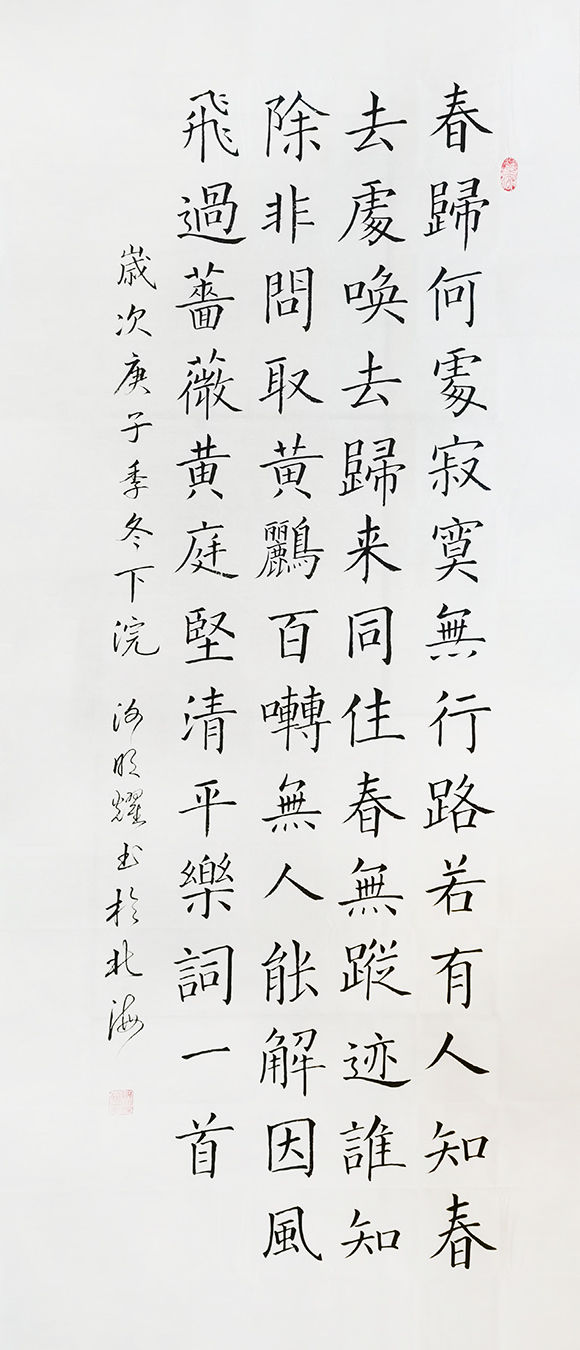 春歸何處寂寞無行路若有人知春
去處喚去歸来同住春無蹤迹誰知
除非問取黄鸝百囀無人能解因風
飛過薔薇黄庭堅清平樂詞一首
歲次庚子季冬下浣 明耀书於北海